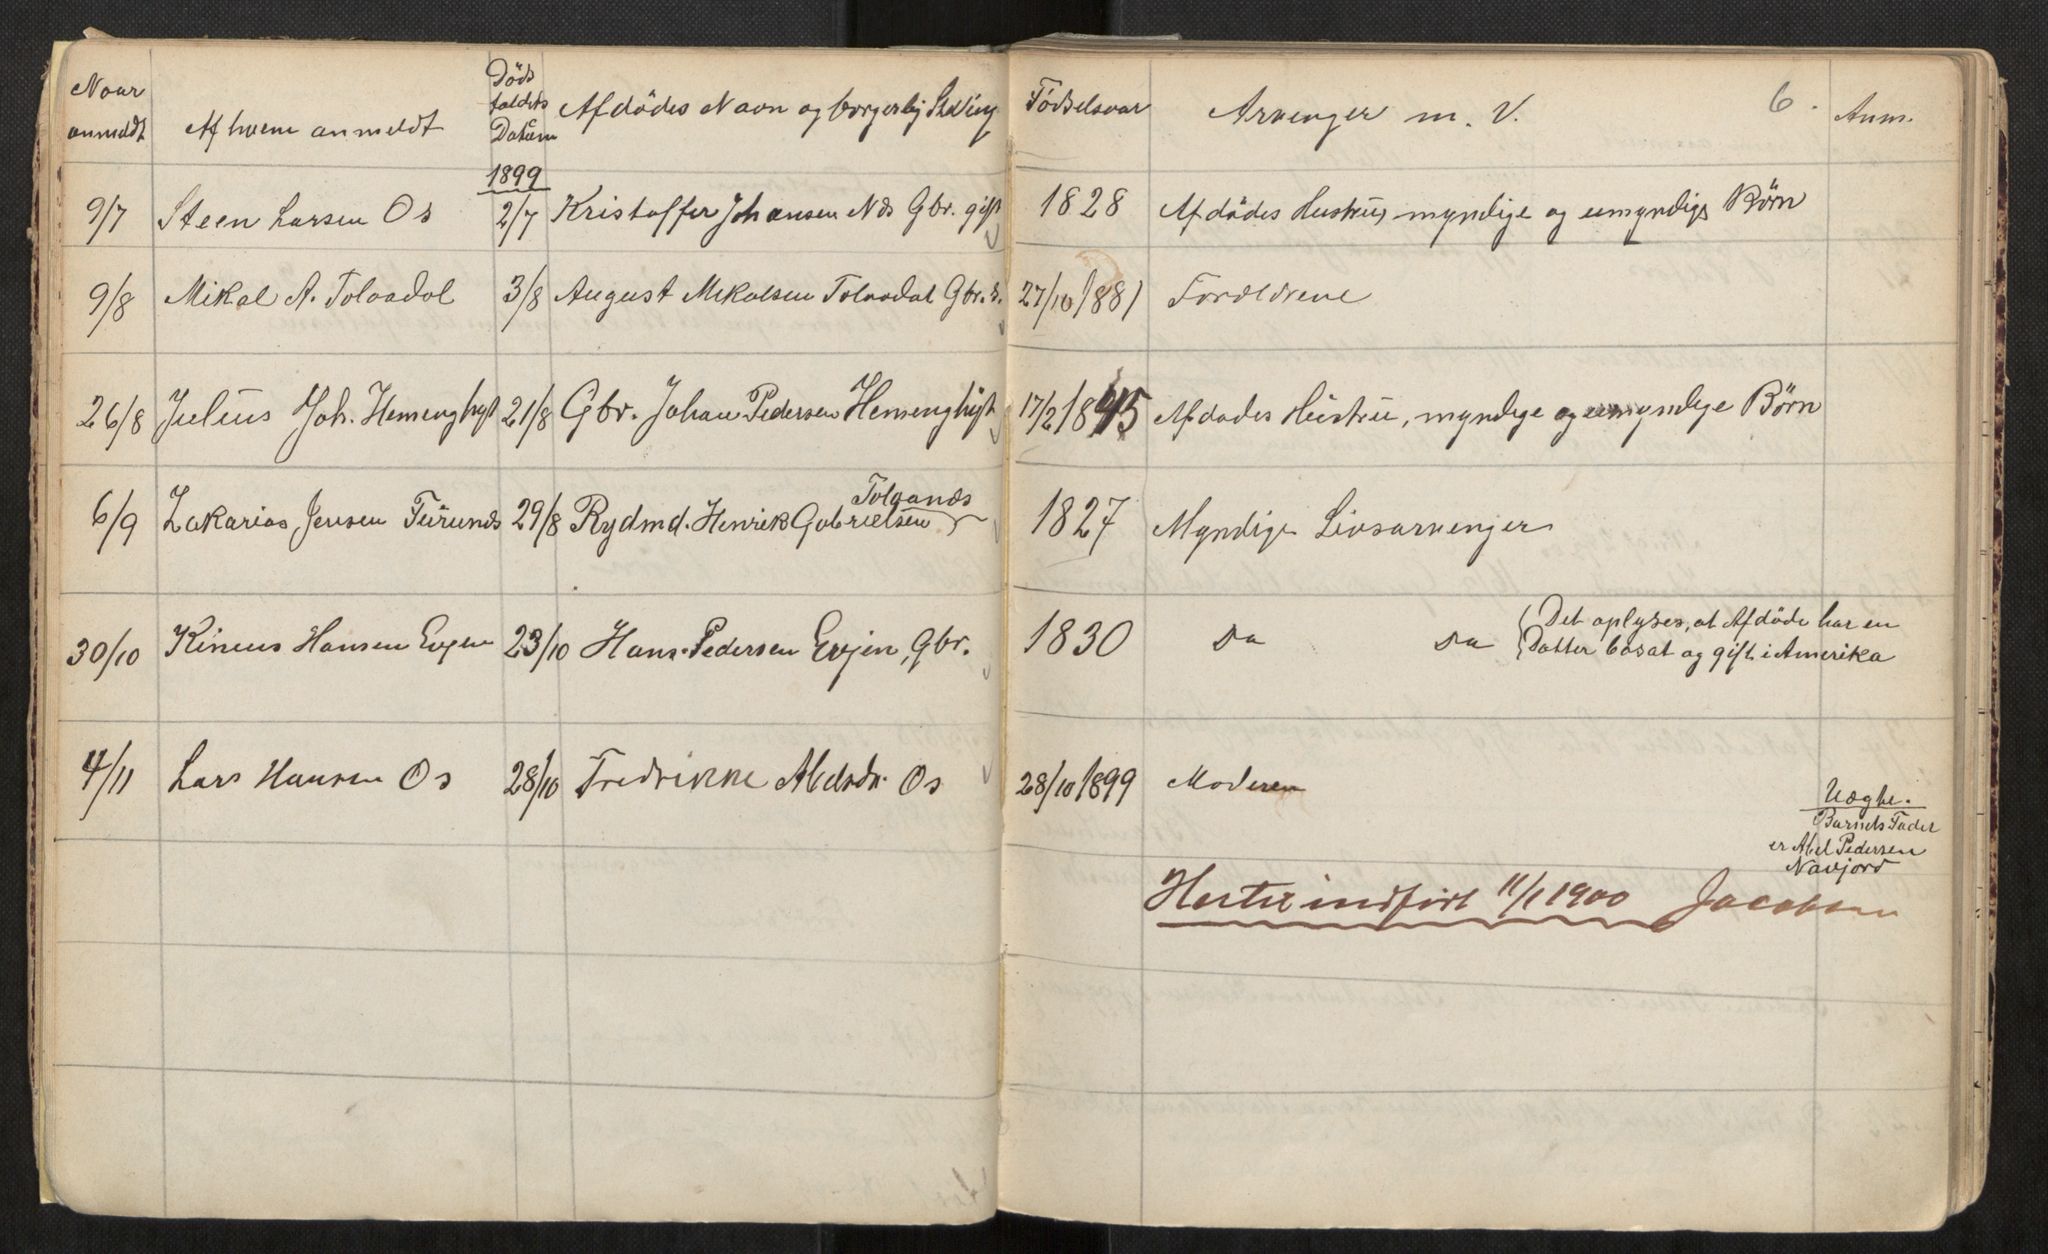 Naar anmeldt
Af hvem anmeldt
Döds faldets Datum
Afdödes Navn og borgerlig Stilling
Fødselsaar
Arvenger m. V.
6.
Anm.
1899
9/7 Steen Larsen Os 2/7 Kristoffer Johansen Næs Gbr. gift 1828 Afdödes Hustru, myndige og umyndige Börn
9/8 Mikal A. Tolaadal 3/8 August Mikalsen Tolaadal Gbr. s. 27/10 1881 Forældrene
26/8 Julius Joh. Hemminghyt 21/8 Gbr. Johan Pedersen Hemminghyt 17/2 1845 Afdödes Hustru, myndige og umyndige Börn
Tolaanæs
6/9 Zakarias Jensen Furunæs 29/8 Rydmd. Henrik Gabrielsen 1827 Myndige Livsarvenger
30/10 Kinius Hansen Evjen 23/10 Hans Pedersen Evjen, Gbr. 1830 Do Do
Det oplyses, at Afdöde har en
Datter bosat og gift i Amerika
4/11 Lars Hansen Os 28/10 Fredrikke Abelsdr. Os 28/10 1899 Moderen
Uægte.
Barnets Fader
er Abel Pedersen
Navjord
Hertil indfört 11/1 1900 Jacobsen